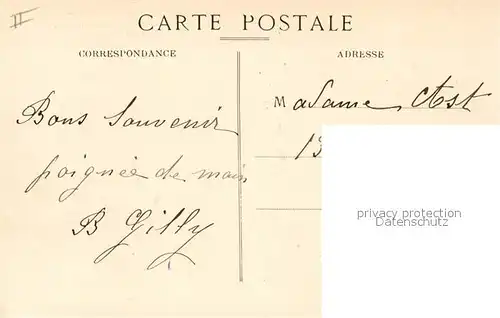 II
CARTE POSTALE
CORRESPONDANCE
ADRESSE
Bons Souvenir
poignée de main
B Gilly
Madame Ast
13
privacy protection
Datenschutz